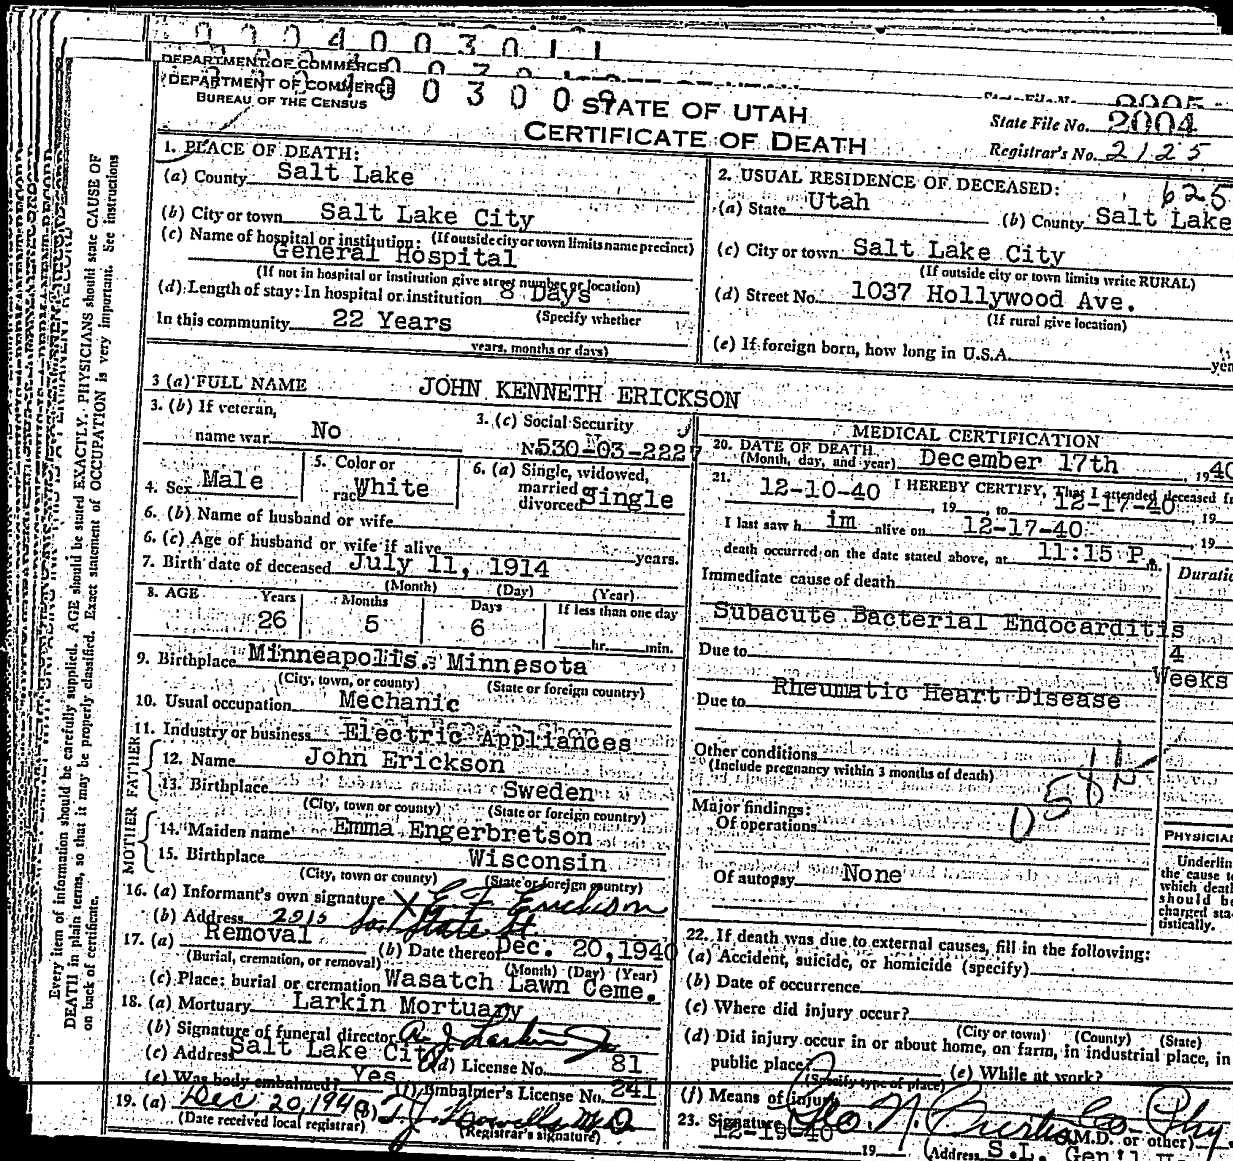 0004003011
DEPARTMENT OF COMMERCE
DEPARTMENT OF COMMERCE
BUREAU OF THE CENSUS
003009
STATE OF UTAH
CERTIFICATE OF DEATH
State File No. 2005
State File No. 2004
Registrar's No. 2125
1. PLACE OF DEATH:
(a) County Salt Lake
(b) City or town Salt Lake City
(If outside city or town limits name precinct)
(c) Name of hospital or institution:
General Hospital
(If not in hospital or institution give street number or location)
(d) Length of stay: In hospital or institution 8 Days
(Specify whether
In this community 22 Years
years, months or days)
2. USUAL RESIDENCE OF DECEASED:
625
(a) State Utah (b) County Salt Lake
(c) City or town Salt Lake City
(If outside city or town limits write RURAL)
(d) Street No. 1037 Hollywood Ave.
(If rural give location)
(e) If foreign born, how long in U.S.A.
3 (a) FULL NAME JOHN KENNETH ERICKSON
3. (b) If veteran,
name war No
3. (c) Social Security
No 530-03-2227
4. Sex Male
5. Color or
race White
6. (a) Single, widowed,
married or
divorced Single
6. (b) Name of husband or wife
6. (c) Age of husband or wife if alive years.
7. Birth date of deceased July 11, 1914
(Month) (Day) (Year)
8. AGE Years Months Days If less than one day
26 5 6 hr. min.
9. Birthplace Minneapolis. Minnesota
(City, town, or county) (State or foreign country)
10. Usual occupation Mechanic
11. Industry or business Electric Appliances
FATHER
12. Name John Erickson
13. Birthplace Sweden
(City, town or county) (State or foreign country)
MOTHER
14. Maiden name Emma Engerbretson
15. Birthplace Wisconsin
(City, town or county) (State or foreign country)
16. (a) Informant's own signature X E F Erickson
(b) Address 2915 So. State St
17. (a) Removal (b) Date thereof Dec. 20, 1940
(Burial, cremation, or removal) (Month) (Day) (Year)
(c) Place: burial or cremation Wasatch Lawn Ceme.
18. (a) Mortuary Larkin Mortuary
(b) Signature of funeral director A. J. Larkin Jr
(c) Address Salt Lake City (d) License No. 81
(e) Was body embalmed? Yes (f) Embalmer's License No. 241
19. (a) Dec, 20, 1940 (b) T. J. Howells M.D
(Date received local registrar) (Registrar's signature)
MEDICAL CERTIFICATION
20. DATE OF DEATH
(Month, day, and year) December 17th, 1940
21. I HEREBY CERTIFY, That I attended deceased
12-10-40, 19 , to 12-17-40, 19
I last saw h im alive on 12-17-40, 19
death occurred on the date stated above, at 11:15 P. m.
Immediate cause of death
Subacute Bacterial Endocarditis
Due to 4 Weeks
Rheumatic Heart Disease
Due to
Other conditions
(Include pregnancy within 3 months of death)
Major findings:
Of operations
Of autopsy None
PHYSICIAN
Underline
the cause to
which death
should be
charged sta-
tistically.
22. If death was due to external causes, fill in the following:
(a) Accident, suicide, or homicide (specify)
(b) Date of occurrence
(c) Where did injury occur?
(City or town) (County) (State)
(d) Did injury occur in or about home, on farm, in industrial place, in
public place? (e) While at work?
(Specify type of place)
(f) Means of injury
23. Signature Geo. N. Curtis Co Phy
(M.D. or other)
12-19-40 19 (Address S.L. Gen'l
Every item of information should be carefully supplied. AGE should be stated EXACTLY. PHYSICIANS should state CAUSE OF
DEATH in plain terms, so that it may be properly classified. Exact statement of OCCUPATION is very important. See instructions
on back of certificate.